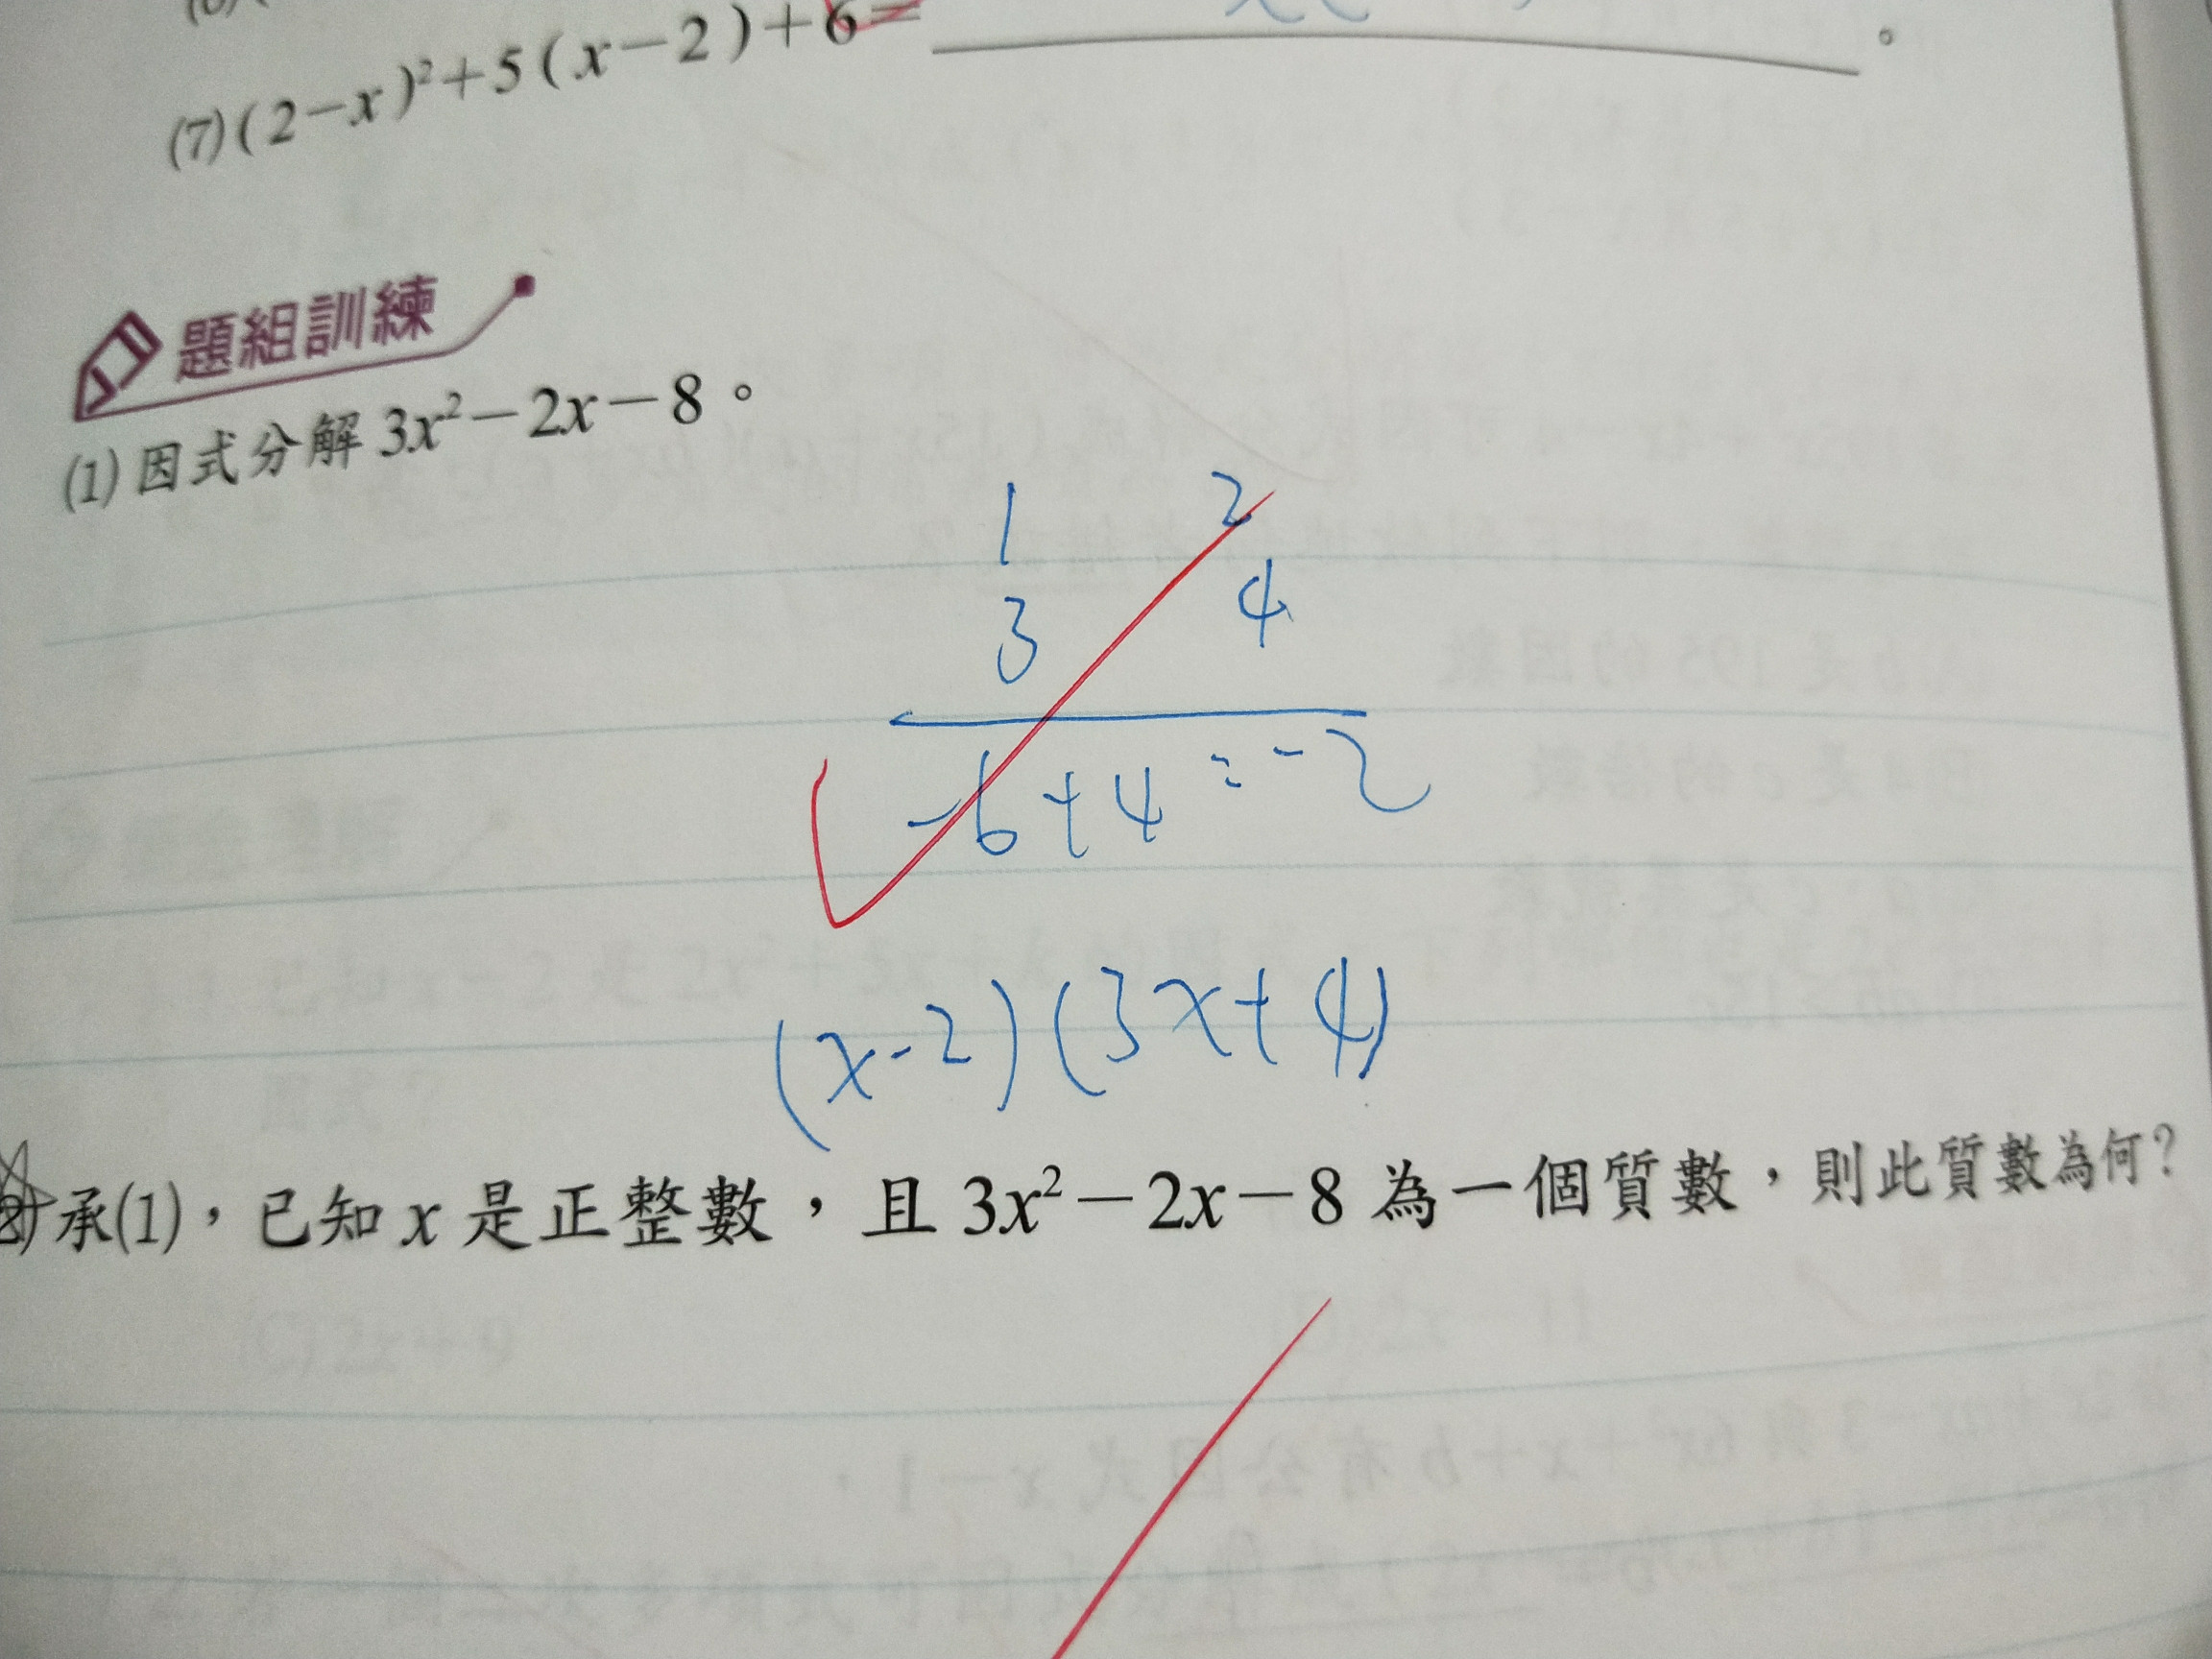 (7) (2－x)²＋5(x－2)＋6＝
題組訓練
(1) 因式分解 3x²－2x－8。
1 2
3 4
-6+4=-2
(x-2)(3x+4)
(2) 承(1)，已知 x 是正整數，且 3x²－2x－8 為一個質數，則此質數為何？